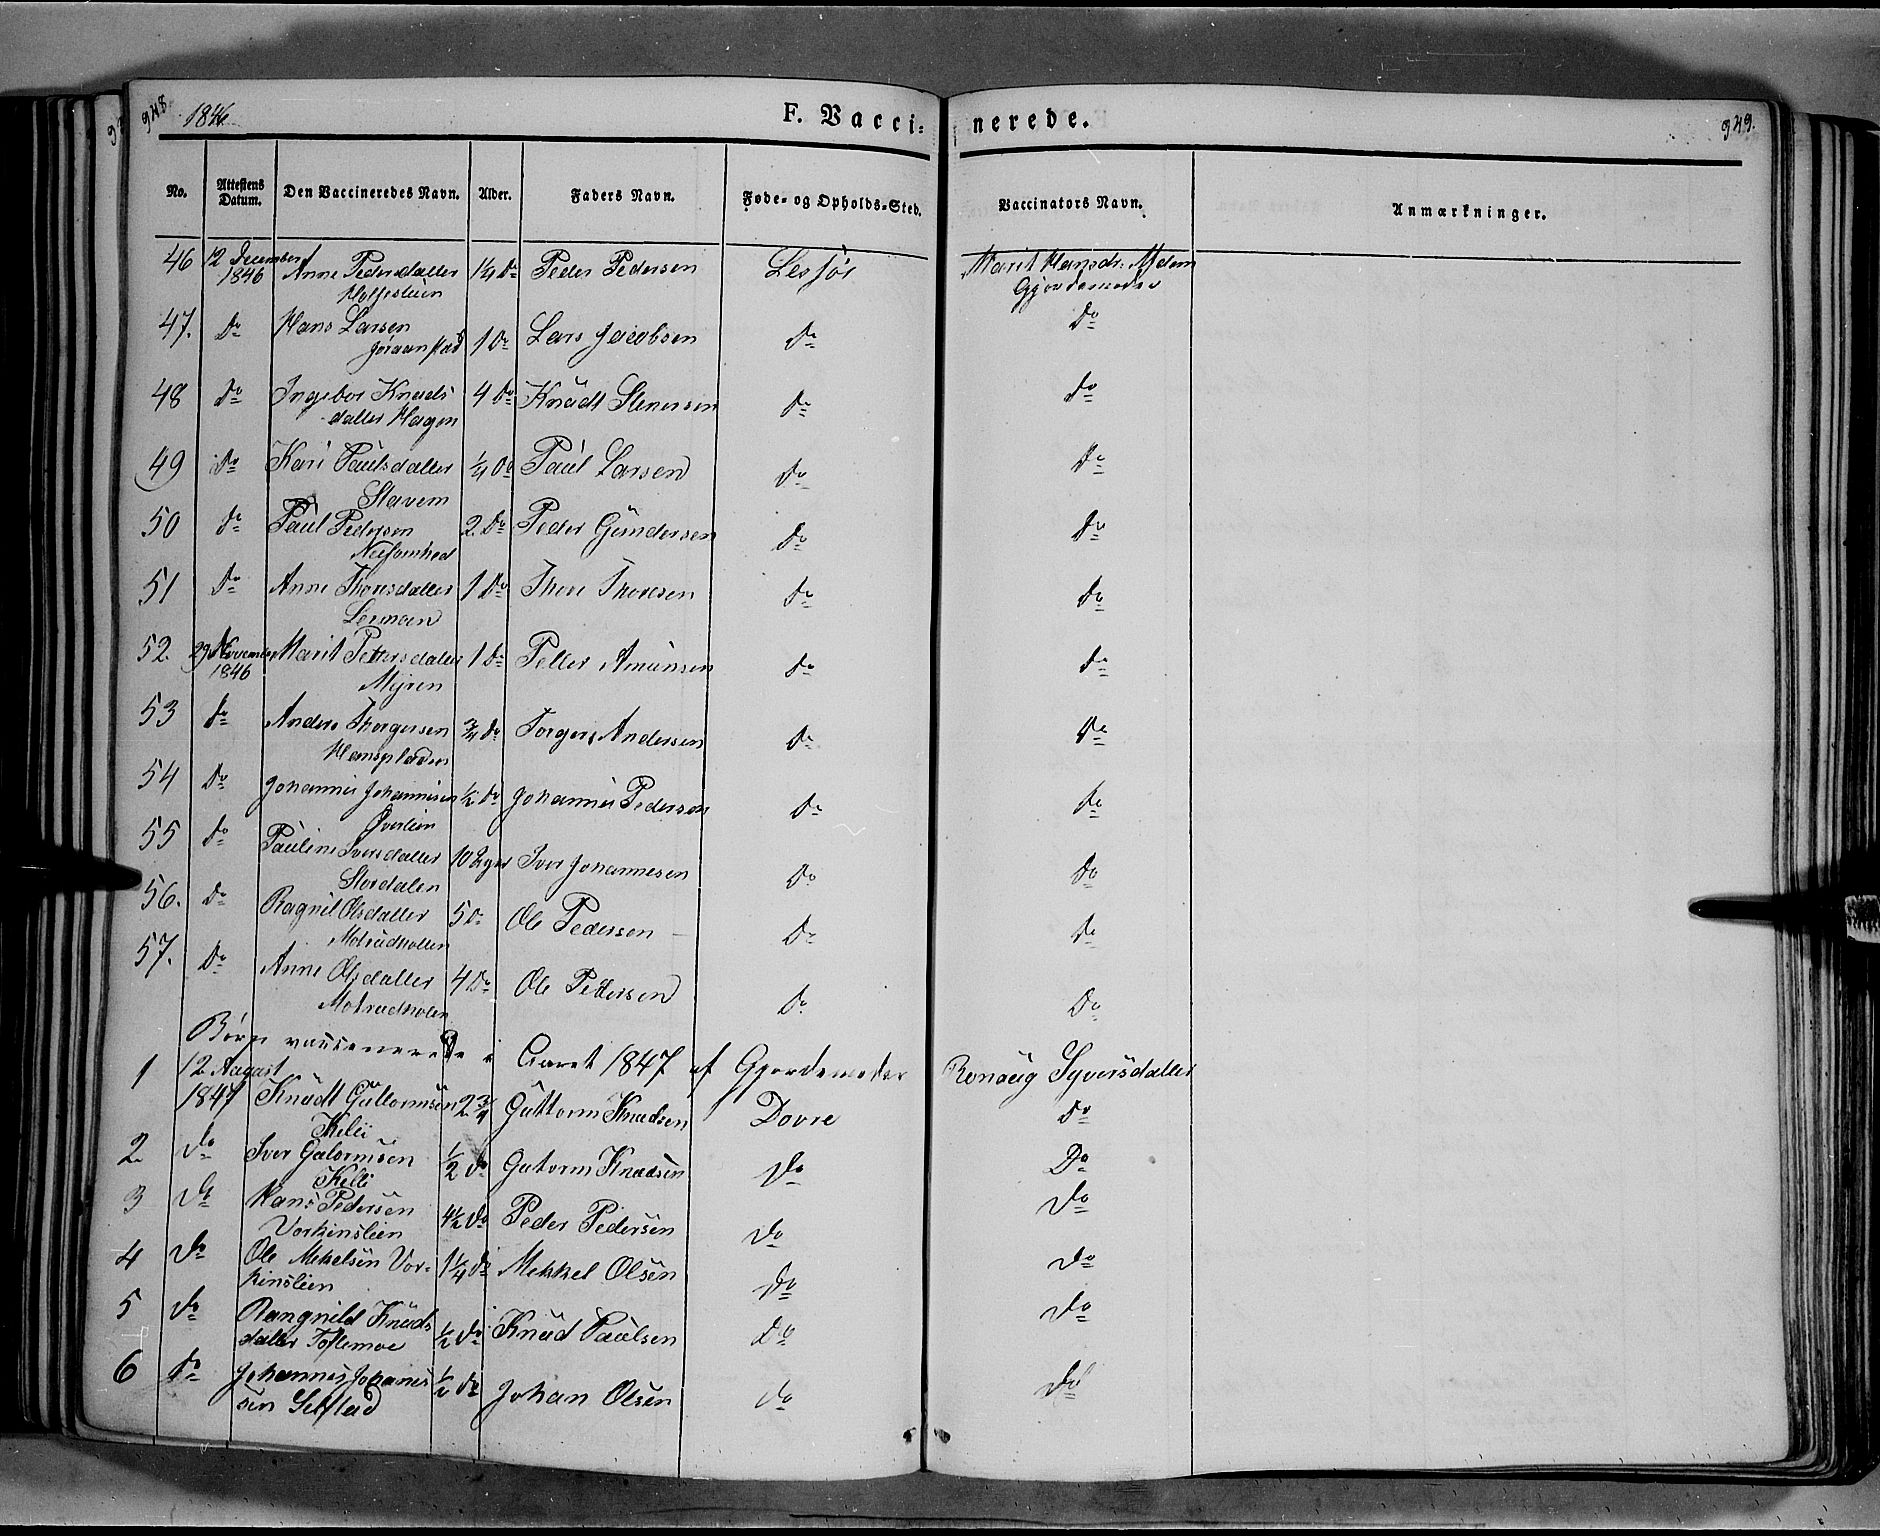 948.
1846
F. Vaccinerede.
949.
No. Attestens Datum. Den Vaccineredes Navn. Alder. Faders Navn. Føde- og Opholds-Sted. Vaccinators Navn. Anmærkninger.
46 12 December 1846 Anne Pedersdatter 1¼ Do Peder Pedersen Lesjøe Marit Hansdr:
Gjordemoder
47. Do Hans Larsen 1 Do Lars Jacobsen Do Do
Joraanstad
48 Do Ingebor Knuds 4 Do Knudt Stenersen Do Do
datter Hagen
49 Do Kari Paulsdatter ¼ Do Paul Larsen Do Do
Stavem
50 Do Paul Pedersen 2. Do Peder Gundersen Do Do
51 Do Anne Thoresdatter 1 Do Thore Thoresen Do Do
52. 29 November 1846 Marit Pettersdatter 1 Do Petter Amunsen Do Do
Myren
53 Do Anders Thorgersen ¾ Do Torgers Andersen Do Do
54 Do Johannes Johannesen ½ Do Johannes Pedersen Do Do
Øverlien
55 Do Pauline Iversdatter 10 Iver Johannesen Do Do
Stordalen
56. Do Ragnil Olsdatter 5 Do Ole Pedersen Do Do
57. Do Anne Olsdatter 4 Do Ole Pettersen Do Do
Børn vaussenerede i Aaret 1847 af Gjordemoder Ronaug Syversdatter
1 12 August 1847 Knudt Guttormsen 2¾ Guttorm Knudsen Dovre Do
2 Do Iver Gutormsen ½ Do Gutorm Knudsen Do Do
3 Do Hans Pedersen 4½ Do Peder Pedersen Do Do
Vorkinslien
4 Do Ole Mekelsen Vor- 1¼ Do Mekkel Olsen Do Do
kinslien
5 Do Rangnild Knuds ½ Do Knud Paulsen Do Do
datter Toftemoe
6 Do Johannes Johanes ½ Do Johan Olsen Do Do
sen